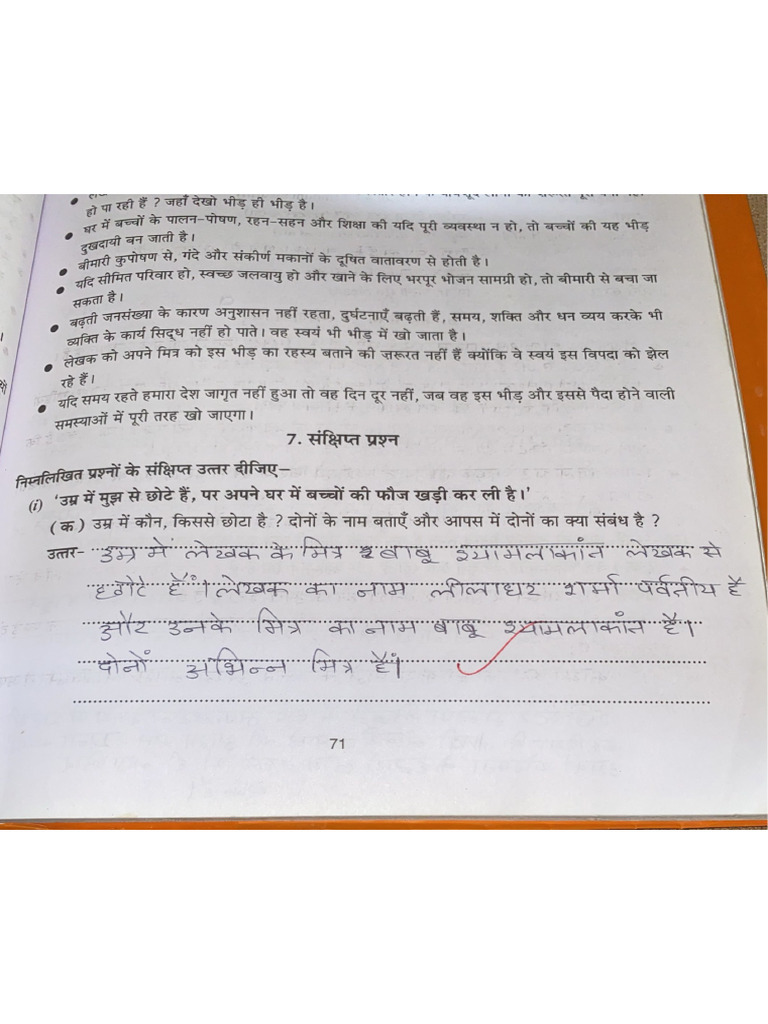 हो पा रही हैं ? जहाँ देखो भीड़ ही भीड़ है।
• घर में बच्चों के पालन-पोषण, रहन-सहन और शिक्षा की यदि पूरी व्यवस्था न हो, तो बच्चों की यह भीड़
दुखदायी बन जाती है।
• बीमारी कुपोषण से, गंदे और संकीर्ण मकानों के दूषित वातावरण से होती है।
• यदि सीमित परिवार हो, स्वच्छ जलवायु हो और खाने के लिए भरपूर भोजन सामग्री हो, तो बीमारी से बचा जा
सकता है।
• बढ़ती जनसंख्या के कारण अनुशासन नहीं रहता, दुर्घटनाएँ बढ़ती हैं, समय, शक्ति और धन व्यय करके भी
व्यक्ति के कार्य सिद्ध नहीं हो पाते। वह स्वयं भी भीड़ में खो जाता है।
• लेखक को अपने मित्र को इस भीड़ का रहस्य बताने की ज़रूरत नहीं हैं क्योंकि वे स्वयं इस विपदा को झेल
रहे हैं।
• यदि समय रहते हमारा देश जागृत नहीं हुआ तो वह दिन दूर नहीं, जब वह इस भीड़ और इससे पैदा होने वाली
समस्याओं में पूरी तरह खो जाएगा।
7. संक्षिप्त प्रश्न
निम्नलिखित प्रश्नों के संक्षिप्त उत्तर दीजिए–
(i) 'उम्र में मुझ से छोटे हैं, पर अपने घर में बच्चों की फौज खड़ी कर ली है।'
(क) उम्र में कौन, किससे छोटा है ? दोनों के नाम बताएँ और आपस में दोनों का क्या संबंध है ?
उत्तर- उम्र में लेखक के मित्र बाबू श्यामलाकांन लेखक से
छोटे हैं। लेखक का नाम लीलाधर शर्मा पर्वतीय है
और उनके मित्र का नाम बाबू श्यामलाकांन है।
दोनों अभिन्न मित्र हैं।
71